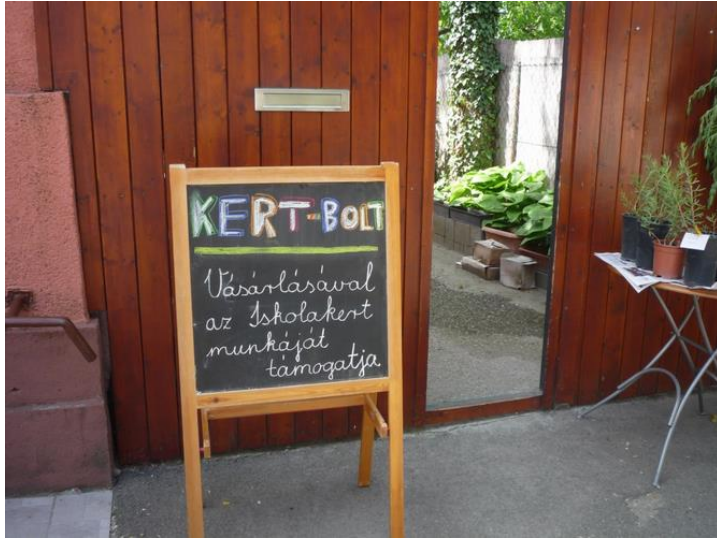 KERT-BOLT
Vásárlásával
az Iskolakert
munkáját
támogatja